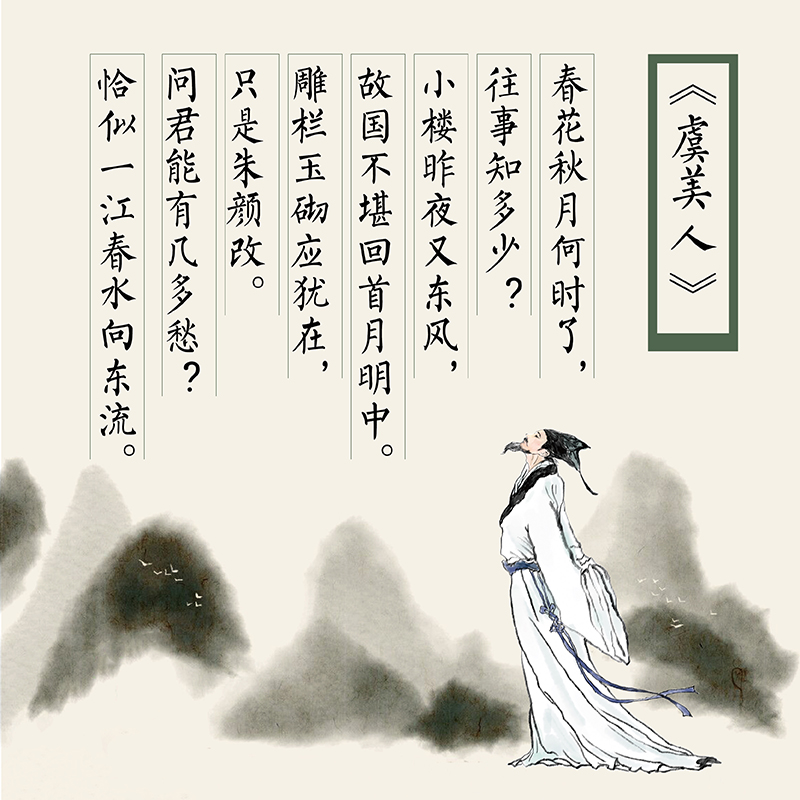 《虞美人》
春花秋月何时了，
往事知多少？
小楼昨夜又东风，
故国不堪回首月明中。
雕栏玉砌应犹在，
只是朱颜改。
问君能有几多愁？
恰似一江春水向东流。